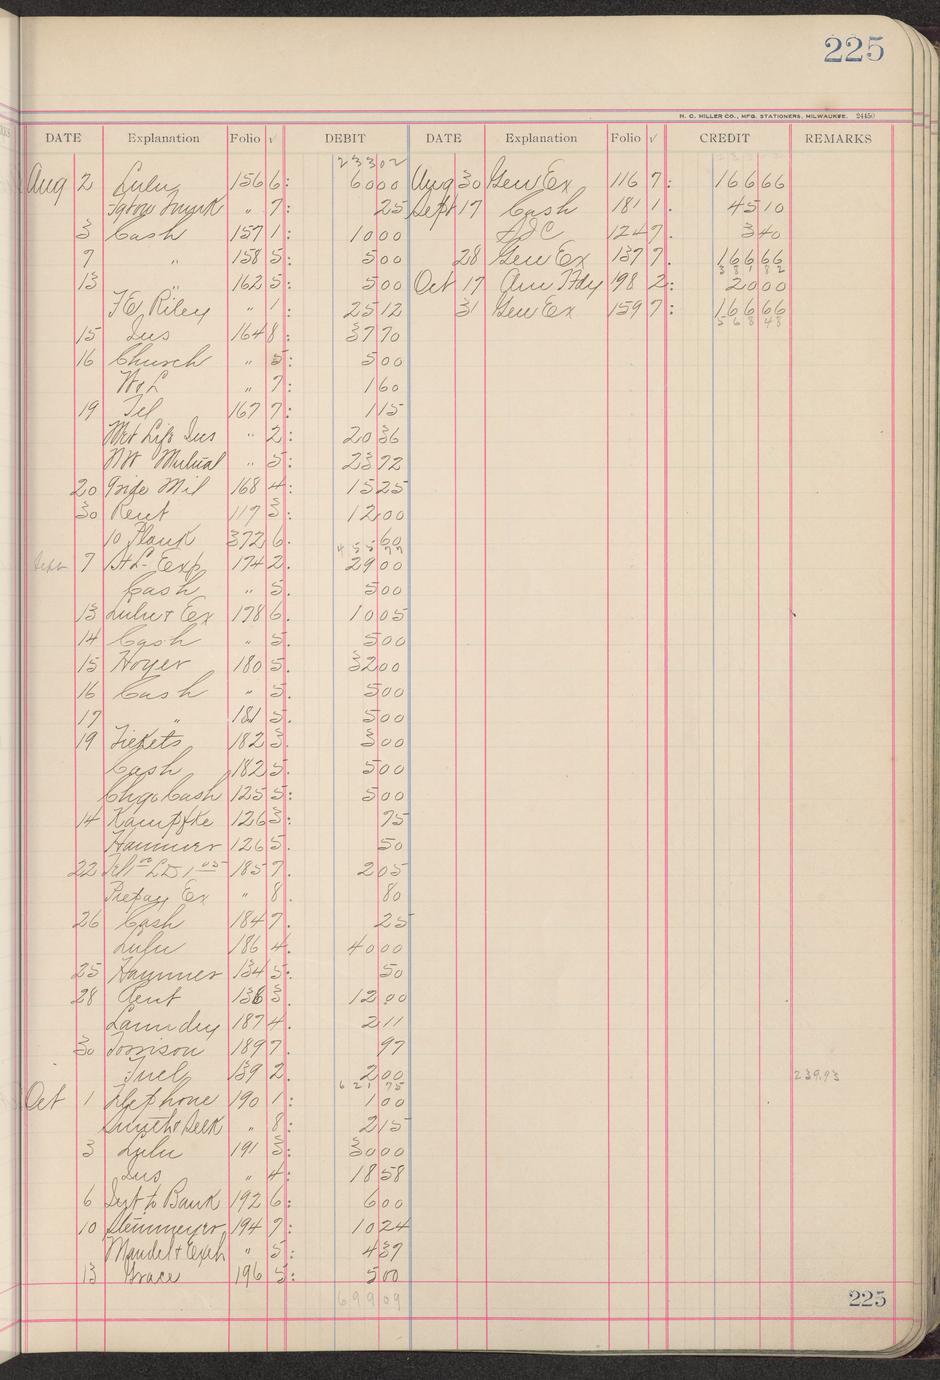 225
H. C. MILLER CO., MFG. STATIONERS, MILWAUKEE. 24450
DATE Explanation Folio √ DEBIT DATE Explanation Folio √ CREDIT REMARKS
23302
Aug 2 Lulu 156 6: 6000 Aug 30 Gen Ex 116 7: 16666
" 7: 25 Sept 17 Cash 181 1. 4510
3 Cash 157 1: 1000 124 7. 340
7 " 158 5: 500 28 Gen Ex 137 7. 16666
38182
13 " 162 5: 500 Oct 17 Am 198 2: 2000
F E Riley " 1: 2512 31 Gen Ex 159 7: 16666
56848
15 Ins 164 8: 3770
16 Church " 5: 500
W & L " 7: 160
19 Tel 167 7: 115
Met Life Ins " 2: 2036
NW Mutual " 5: 2372
20 Mil 168 4: 1525
30 Rent 117 3: 1200
10 Plank 372 6. 60
45577
Sept 7 Exp 174 2. 2900
Cash " 5. 500
13 Lulu + Ex 178 6. 1005
14 Cash " 5. 500
15 Hoyer 180 5. 3200
16 Cash " 5. 500
17 " 181 5. 500
19 Tickets 182 3. 300
Cash 182 5. 500
Chgo Cash 125 5: 500
14 Kampfke 126 3: 75
Hammer 126 5. 50
22 185 7. 205
Prepay Ex " 8. 80
26 Cash 184 7. 25
Lulu 186 4. 4000
25 Hammer 134 5. 50
28 Rent 136 3. 1200
Laundry 187 4. 211
30 Torrison 189 7. 97
Fuel 139 2. 200 239.93
62175
Oct 1 Telephone 190 1: 100
Smyth + " 8: 215
3 Lulu 191 3: 3000
Ins " 4: 1858
6 Int to Bank 192 6: 600
10 Steinmeyer 194 7: 1024
Mandel + Exch " 5: 437
13 Grace 196 5: 500
69909
225